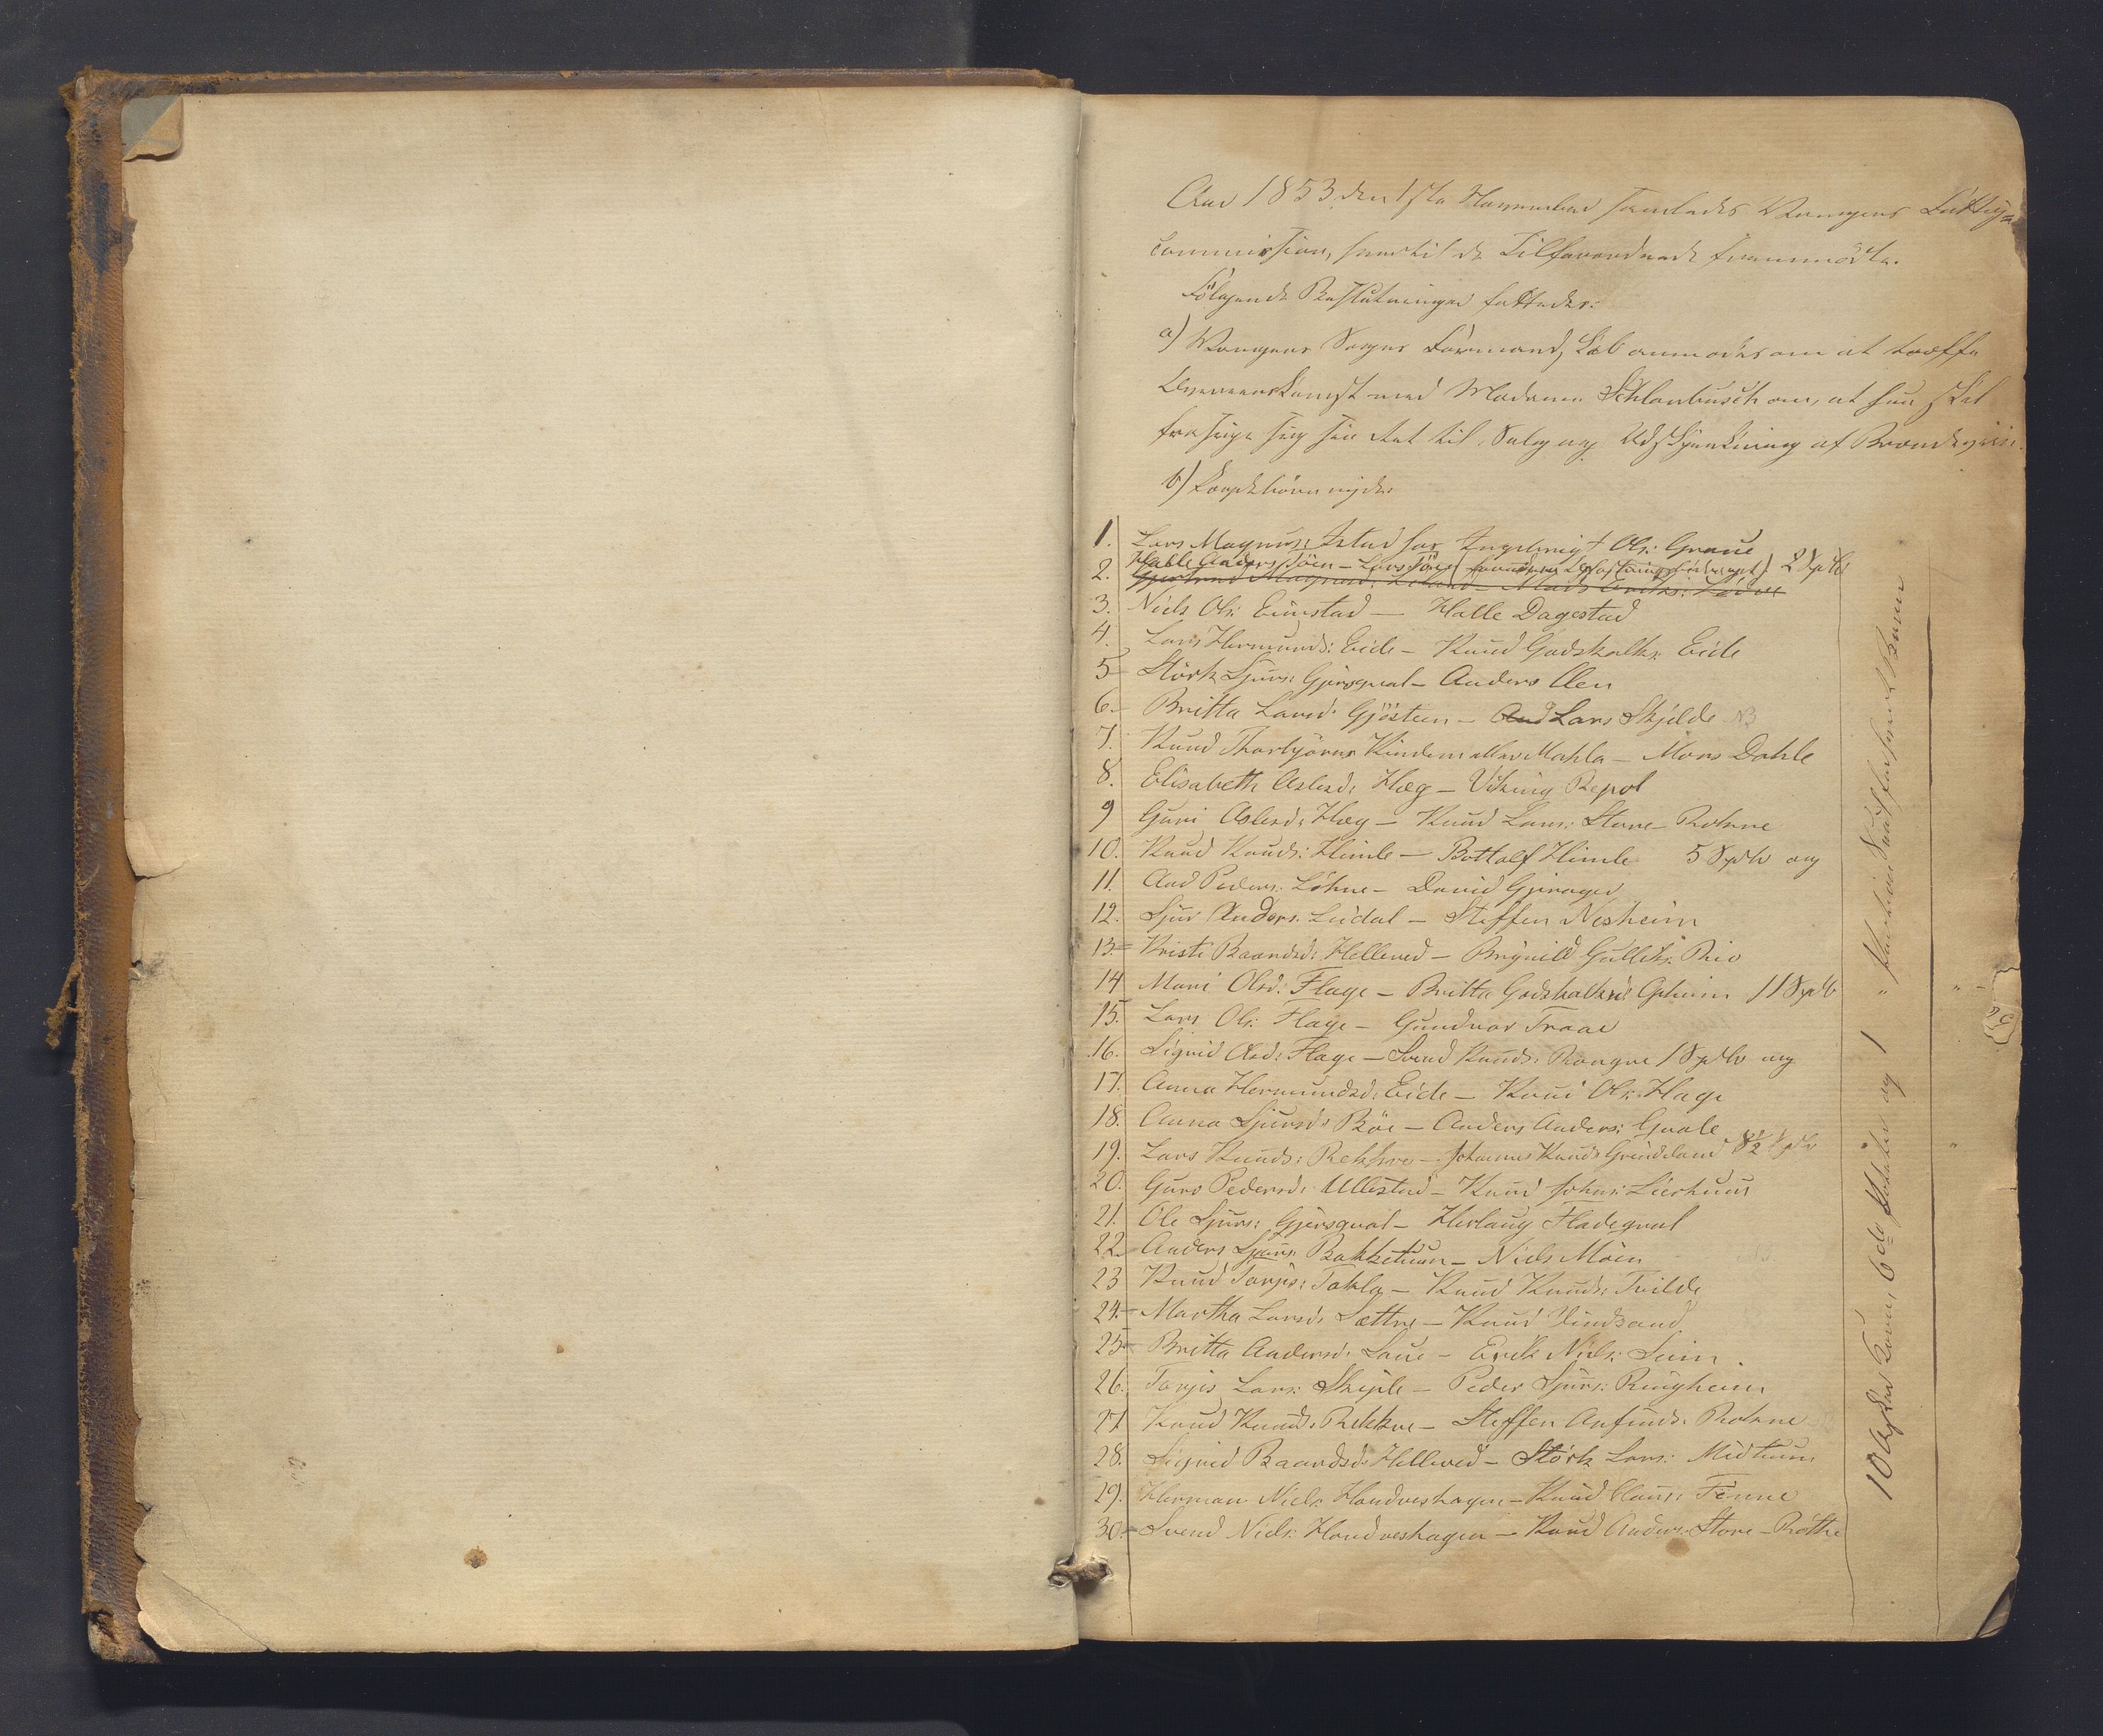 Aar 1853 den 1ste November samledes Vangens Fattig=
commission, samt til de Tilforordnede fremmødte.
Følgende Beslutninger fattedes:
a) Vangens Sogns Formand, Læb anmodes om at træffe
Overeenskomst med Madame Schlanbusch om, at hun skal
frasige sig sin Ret til Salg og Udskjænkning af Brændeviin.
b) Lægdebørn nyde:
1. Lars Magnus: Istad hos Ingebrigt Ols: Graue
2. Halle Anders: Söen - Lars 2 Spdlr
3. Niels Ols: Eimstad — Halle Dagestad
4. Lars Hermunds: Eide — Knud Godskalks: Eide
5 Störk Sjurs: Gjersqual — Anders Uen
6. Britta Larsd: Gjöstein — And Lars Skjelde NB
7. Knud Thorbjörns: Kindem eller Mahla — Mons Dahle
8. Elisabeth Aslesd: Hæg — Viking Repal
9 Guri Aslesd: Hæg — Knud Lars: Store-Rokne
10. Knud Knuds: Himle — Bottolf Himle 5 Spdlr og
11. And Peders: Löhne — David Gjerager
12. Sjur Anders: Lüdal — Steffen Nesheim
13 Kristi Baardsd: Helleved — Brynild Gulleiks: Rio
14 Mari Olsd: Flage — Britta Godskalksd: Gjelmin 11 Spdlr
15. Lars Ols: Flage — Gundvor Traae
16. Sigrid Asd: Flage — Svend Knuds: Rongve 1 Spdlr og
17. Anna Hermundsd: Eide — Knud Ols: Flage
18. Anna Sjursd: Böe — Anders Anders: Gvale
19. Lars Knuds: Rekkve — Johannes Knuds: Grindeland 8½ Spdlr
20. Guro Pedersd: Ullestad — Knud Johns: Lieshuus
21. Ole Sjurs: Gjersqual — Herlaug Fladeqval
22 Anders Sjurs: Bakketuun — Niels Möen
23 Knud Torjes: Takla — Knud Knuds: Tvilde
24 Martha Larsd: Sættre — Knud Vindsand
25 Britta Andersd: Saue — Erik Niels: Seim
26. Torjes Lars: Skiple — Peder Sjurs: Ringheim
27 Knud Knuds: Rekkve — Steffen Anfinds: Rokne
28. Sigrid Baardsd: Helleved — Störk Lars: Midtuun
29. Herman Niels: Hondveshagen — Knud Claus: Finne
30 Svend Niels: Hondveshagen — Knud Anders: Store-Röthe